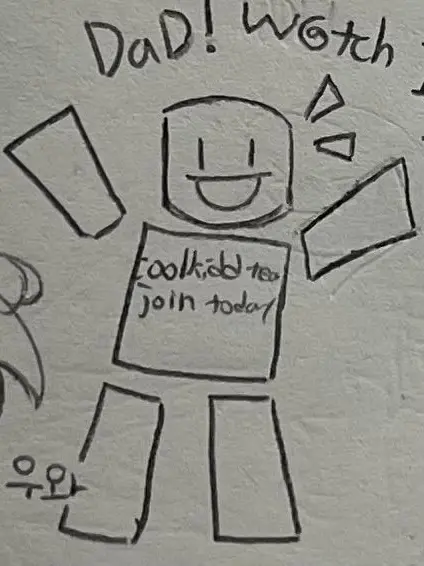 DaD! Watch
coolkidd tea
join today
우와